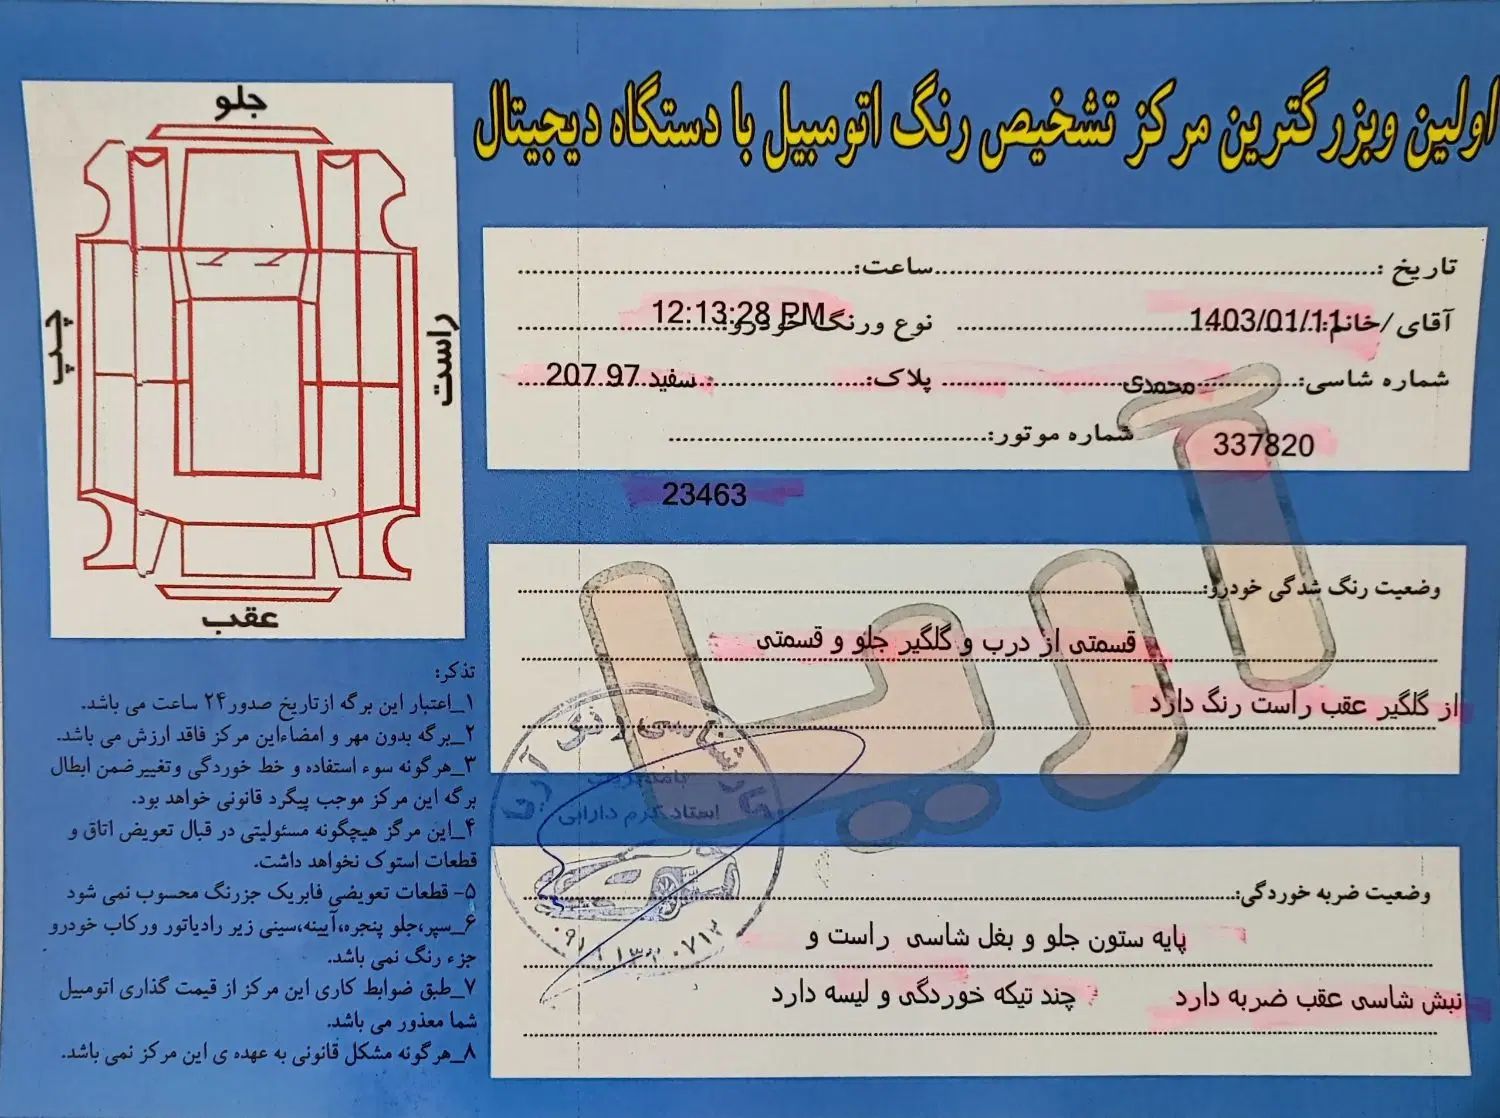 اولین وبزرگترین مرکز تشخیص رنگ اتومبیل با دستگاه دیجیتال
جلو
راست
چپ
عقب
تاریخ : ساعت:
1403/01/11 12:13:28 PM
آقای /خانم: نوع ورنگ خودرو:
محمدی سفید 207.97
شماره شاسی: پلاک:
337820
شماره موتور:
23463
وضعیت رنگ شدگی خودرو:
قسمتی از درب و گلگیر جلو و قسمتی
از گلگیر عقب راست رنگ دارد
آریا
وضعیت ضربه خوردگی:
پایه ستون جلو و بغل شاسی راست و
نبش شاسی عقب ضربه دارد چند تیکه خوردگی و لیسه دارد
کارشناسی رنگ آریا
استاد کرم دارابی
تذکر:
۱_اعتبار این برگه ازتاریخ صدور۲۴ ساعت می باشد.
۲_برگه بدون مهر و امضاءاین مرکز فاقد ارزش می باشد.
۳_هرگونه سوء استفاده و خط خوردگی وتغییرضمن ابطال
برگه این مرکز موجب پیگرد قانونی خواهد بود.
۴_این مرگز هیچگونه مسئولیتی در قبال تعویض اتاق و
قطعات استوک نخواهد داشت.
۵- قطعات تعویضی فابریک جزرنگ محسوب نمی شود
۶_سپر،جلو پنجره،آیینه،سینی زیر رادیاتور ورکاب خودرو
جزء رنگ نمی باشد.
۷_طبق ضوابط کاری این مرکز از قیمت گذاری اتومبیل
شما معذور می باشد.
۸_هرگونه مشکل قانونی به عهده ی این مرکز نمی باشد.